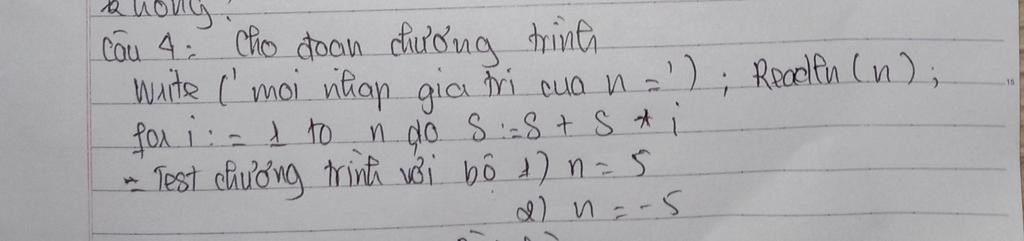 không.
Câu 4: Cho đoạn chương trình
Write ('moi nhap gia tri cua n ='); Readln(n);
for i:= 1 to n do S:=S + S * i
- Test chương trình với bộ 1) n = 5
2) n = -5